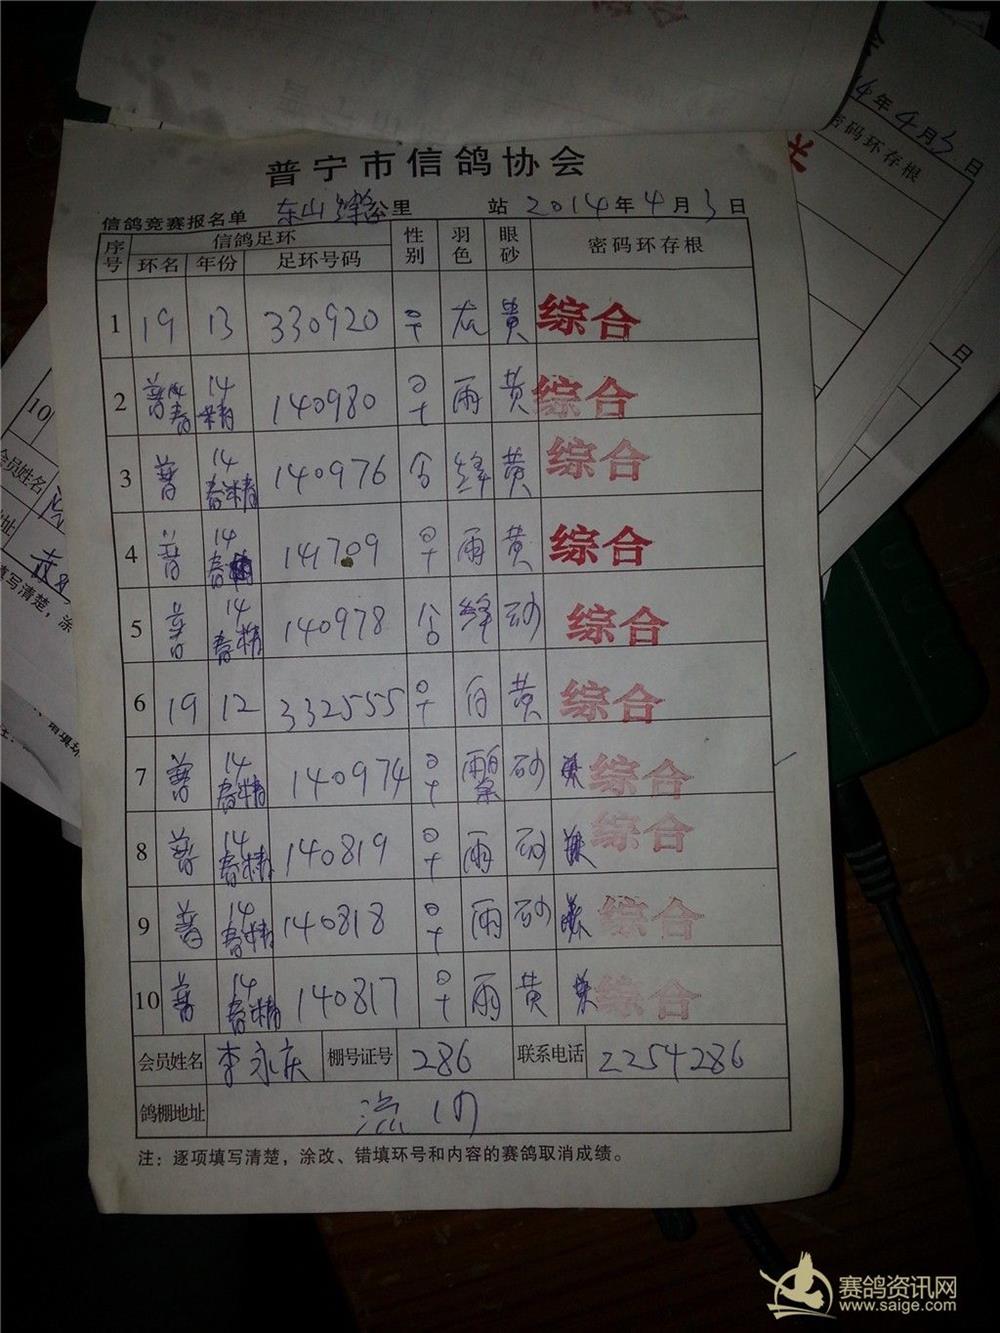 普宁市信鸽协会
信鸽竞赛报名单 东山 公里 站 2014年4月3日
序号 信鸽足环 性别 羽色 眼砂 密码环存根
环名 年份 足环号码
1 19 13 330920 早 黄 综合
2 普 14 140980 早 雨 黄 综合
3 普 14 春精 140976 合 绛 黄 综合
4 普 14 春 141709 早 雨 黄 综合
5 普 14 春精 140978 公 绛 砂 综合
6 19 12 332555 早 白 黄 综合
7 普 14 春精 140974 早 砂 综合
8 普 14 春精 140819 早 雨 砂 综合
9 普 14 春精 140818 早 雨 砂 综合
10 普 14 春精 140817 早 雨 黄 综合
会员姓名 李永庆 棚号证号 286 联系电话 2254286
鸽棚地址 流
注：逐项填写清楚，涂改、错填环号和内容的赛鸽取消成绩。
年4月3日
密码环存根
日
10
会员姓名
赛鸽资讯网
www.saige.com